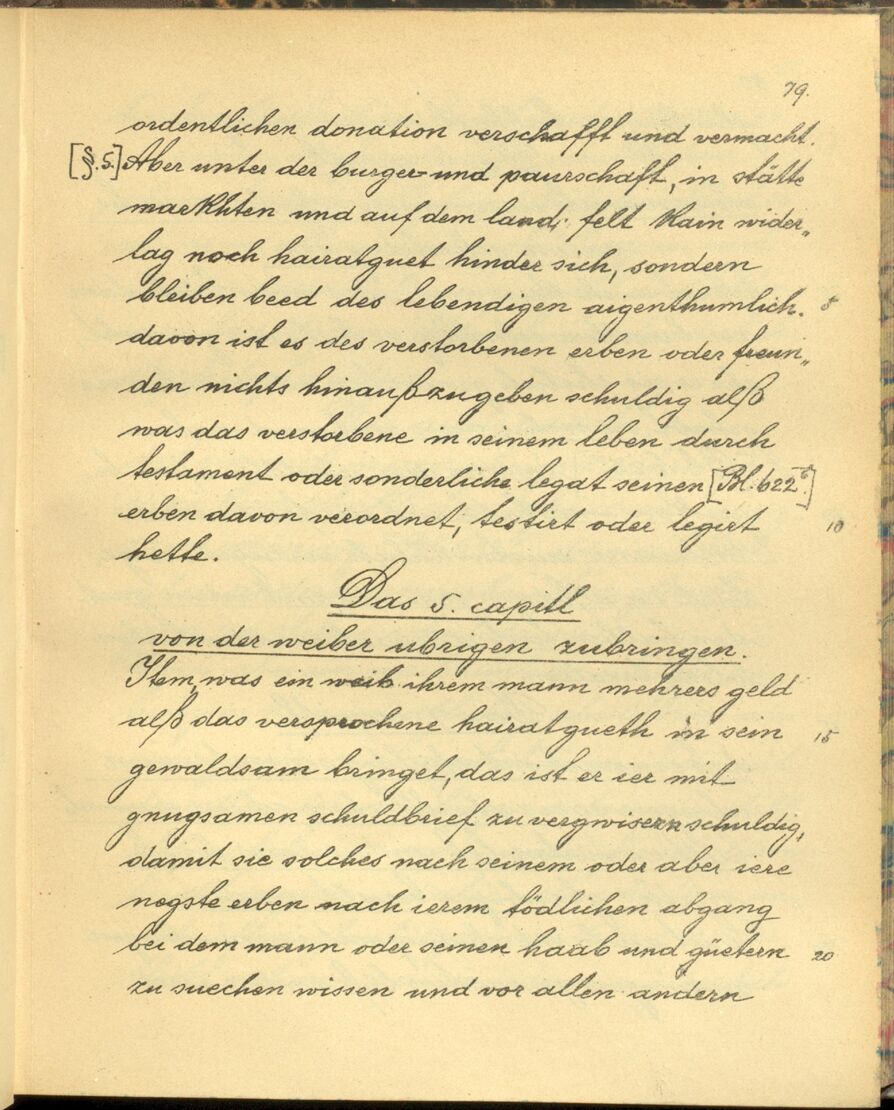 79.
ordentlichen donation verschafft und vermacht.
[§.5.] Aber unter der burger- und paurschaft, in stätte
markhten und auf dem land, felt kain wider„
lag noch hairatguet hinder sich, sondern
bleiben beed des lebendigen aigenthumlich. 5
davon ist es des verstorbenen erben oder freun„
den nichts hinaußzugeben schuldig alß
was das verstorbene in seinem leben durch
testament oder sonderliche legat seinen [Bl. 622b.]
erben davon verordnet, testirt oder legirt 10
hette.
Das 5. capitl
von der weiber ubrigen zubringen.
Item, was ein weib ihrem mann mehrers geld
alß das versprochene hairatgueth in sein 15
gewaldsam bringet, das ist er ier mit
gnugsamen schuldbrief zu vergwisern schuldig,
damit sie solches nach seinem oder aber iere
negste erben nach ierem tödlichen abgang
bei dem mann oder seinen haab und güetern 20
zu suechen wissen und vor allen andern